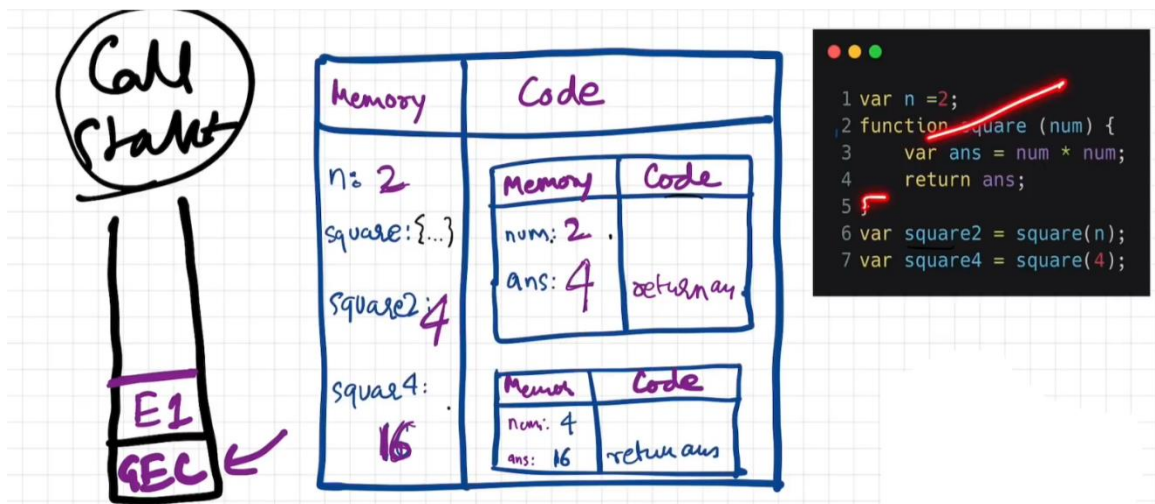 Call
Stakt
E1
GEC
Memory
Code
n: 2
square:{...}
square2:4
squar4:
16
Memory
Code
num: 2
ans: 4
return an
Memor
Code
num: 4
ans: 16
retun ans
1 var n =2;
2 function square (num) {
3 var ans = num * num;
4 return ans;
5 }
6 var square2 = square(n);
7 var square4 = square(4);